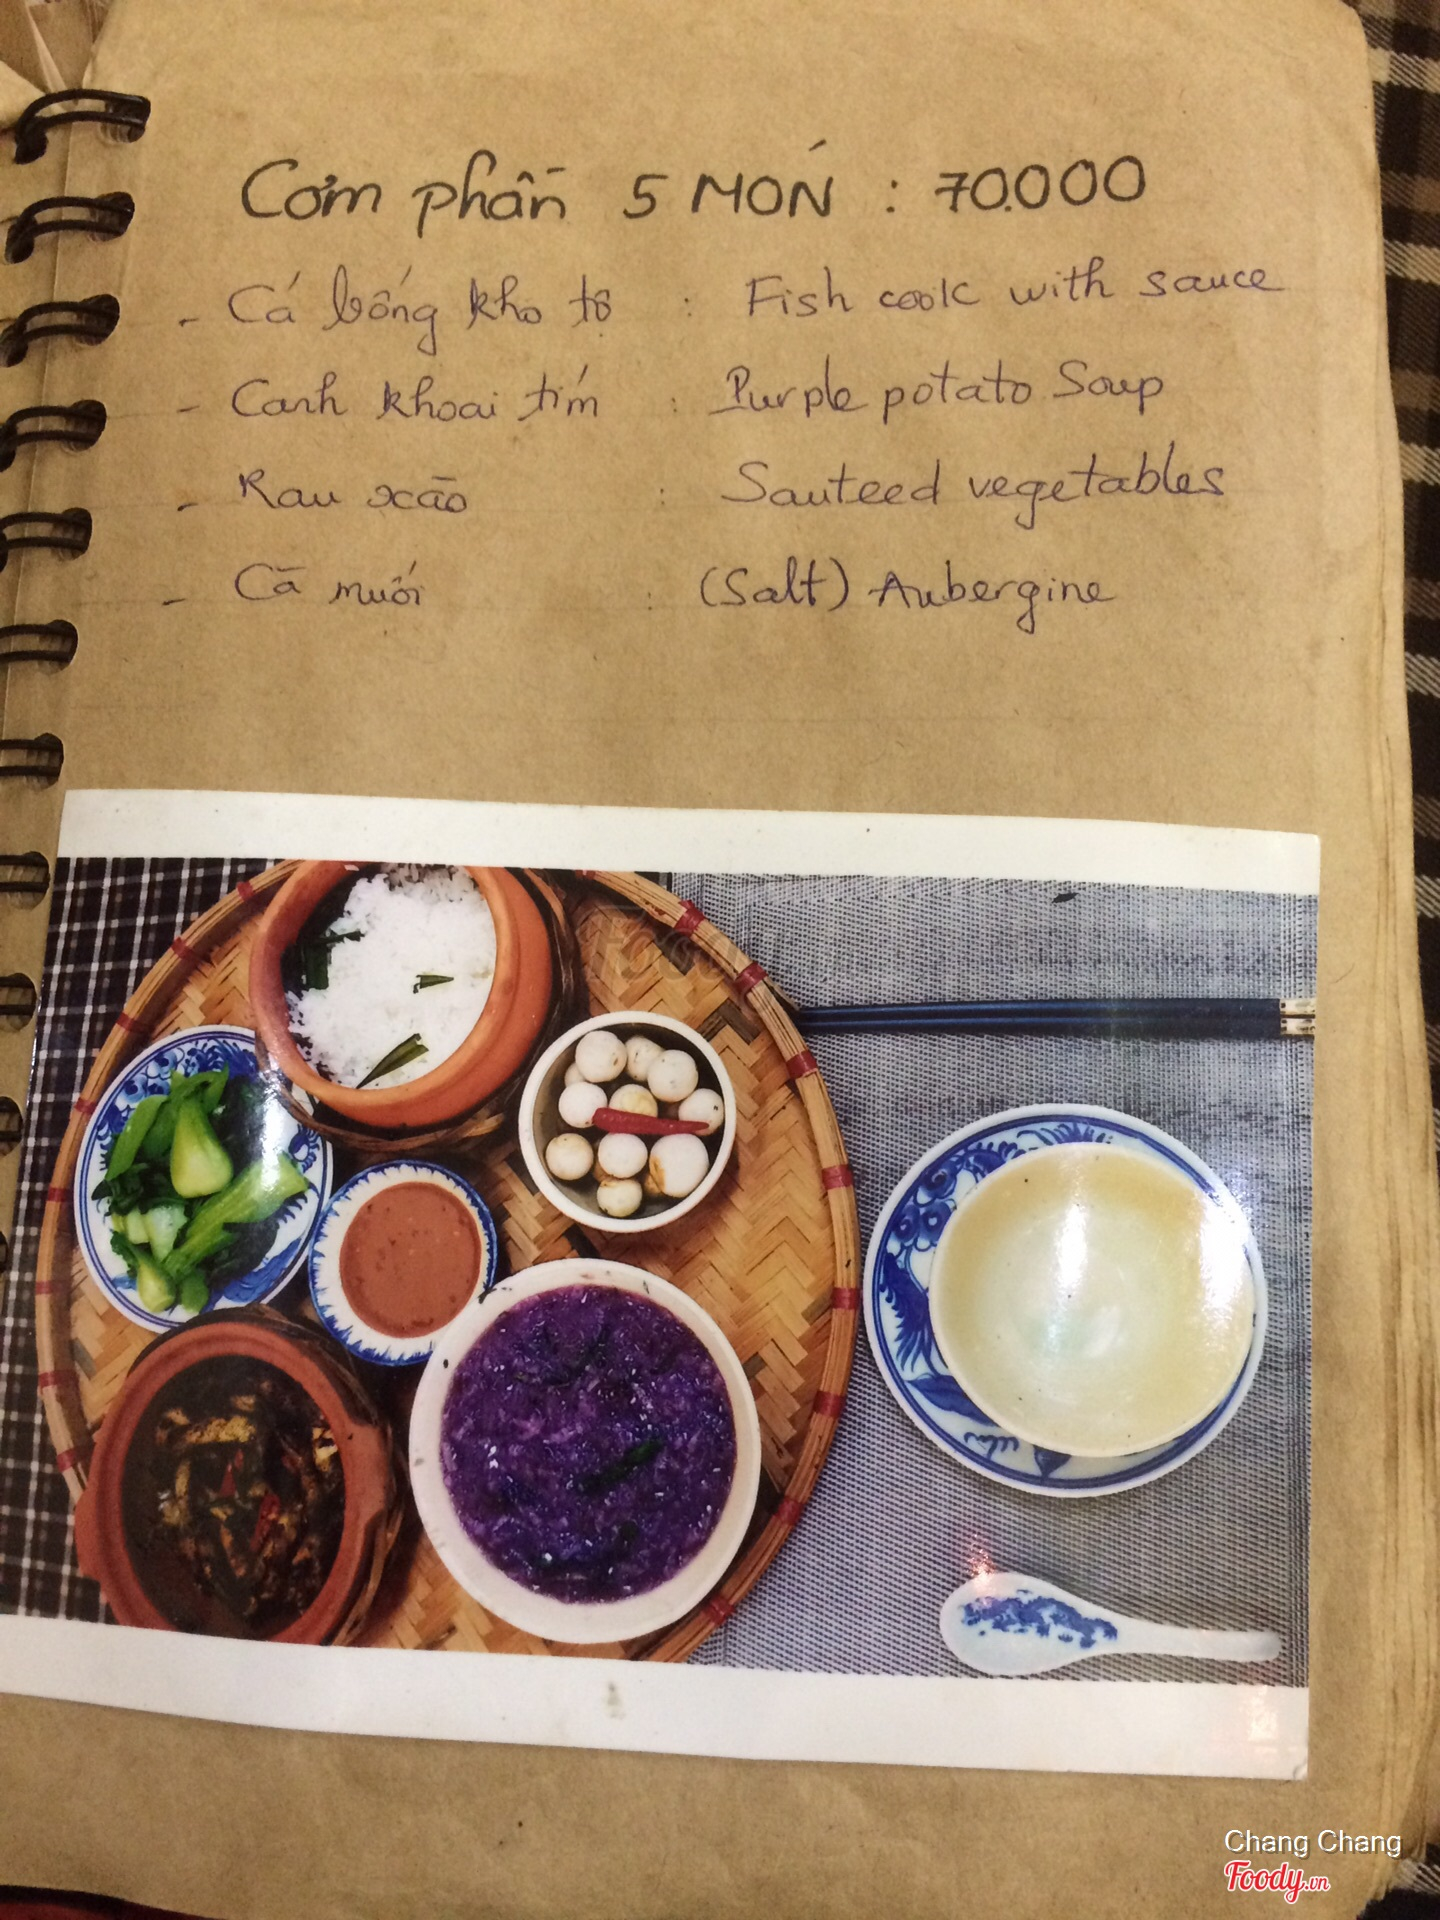 Cơm phần 5 MÓN : 70.000
- Cá bống kho tộ : Fish cook with sauce
- Canh khoai tím : Purple potato Soup
- Rau xào : Sauteed vegetables
- Cà muối : (Salt) Aubergine
Foody
Chang Chang
Foody.vn